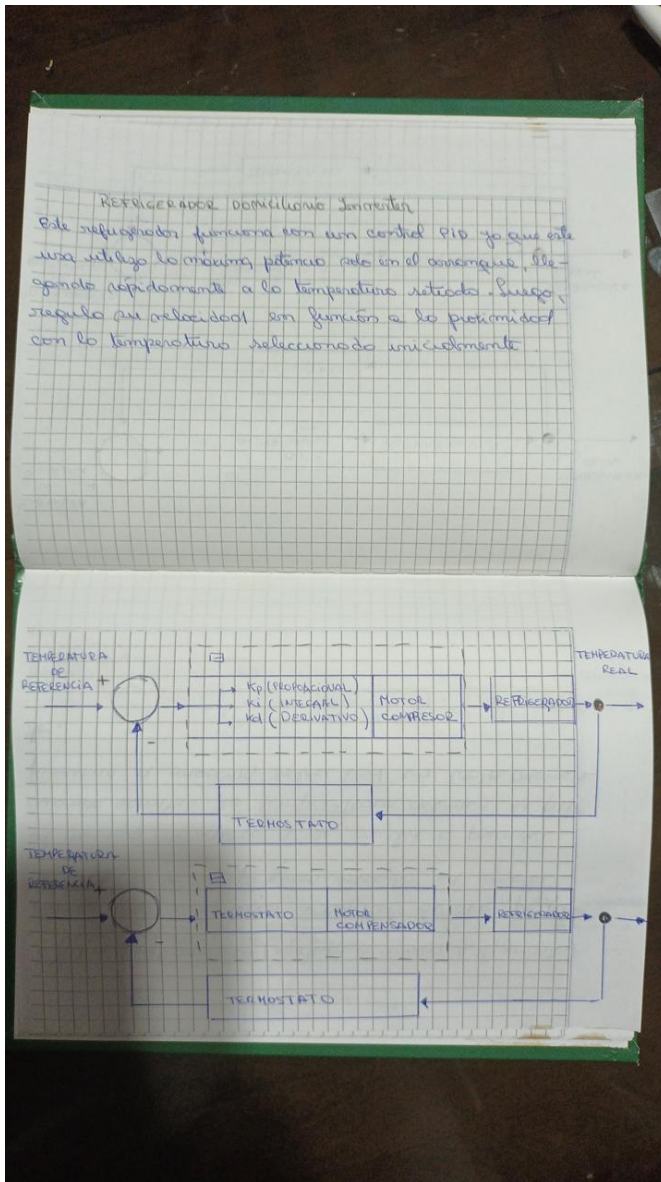 REFRIGERADOR DOMICILIARIO Inverter
Este refrigerador funciona con un control PID ya que este
usa utiliza la máxima potencia solo en el arranque, lle-
gando rápidamente a la temperatura seteada. Luego,
regula su velocidad en función a la proximidad
con la temperatura seleccionada inicialmente
TEMPERATURA
DE
REFERENCIA +
-
Kp (PROPORCIONAL)
Ki (INTEGRAL)
Kd (DERIVATIVO)
MOTOR
COMPRESOR
REFRIGERADOR
TEMPERATURA
REAL
TERMOSTATO
TEMPERATURA
DE
REFERENCIA +
-
TERMOSTATO
MOTOR
COMPENSADOR
REFRIGERADOR
TERMOSTATO